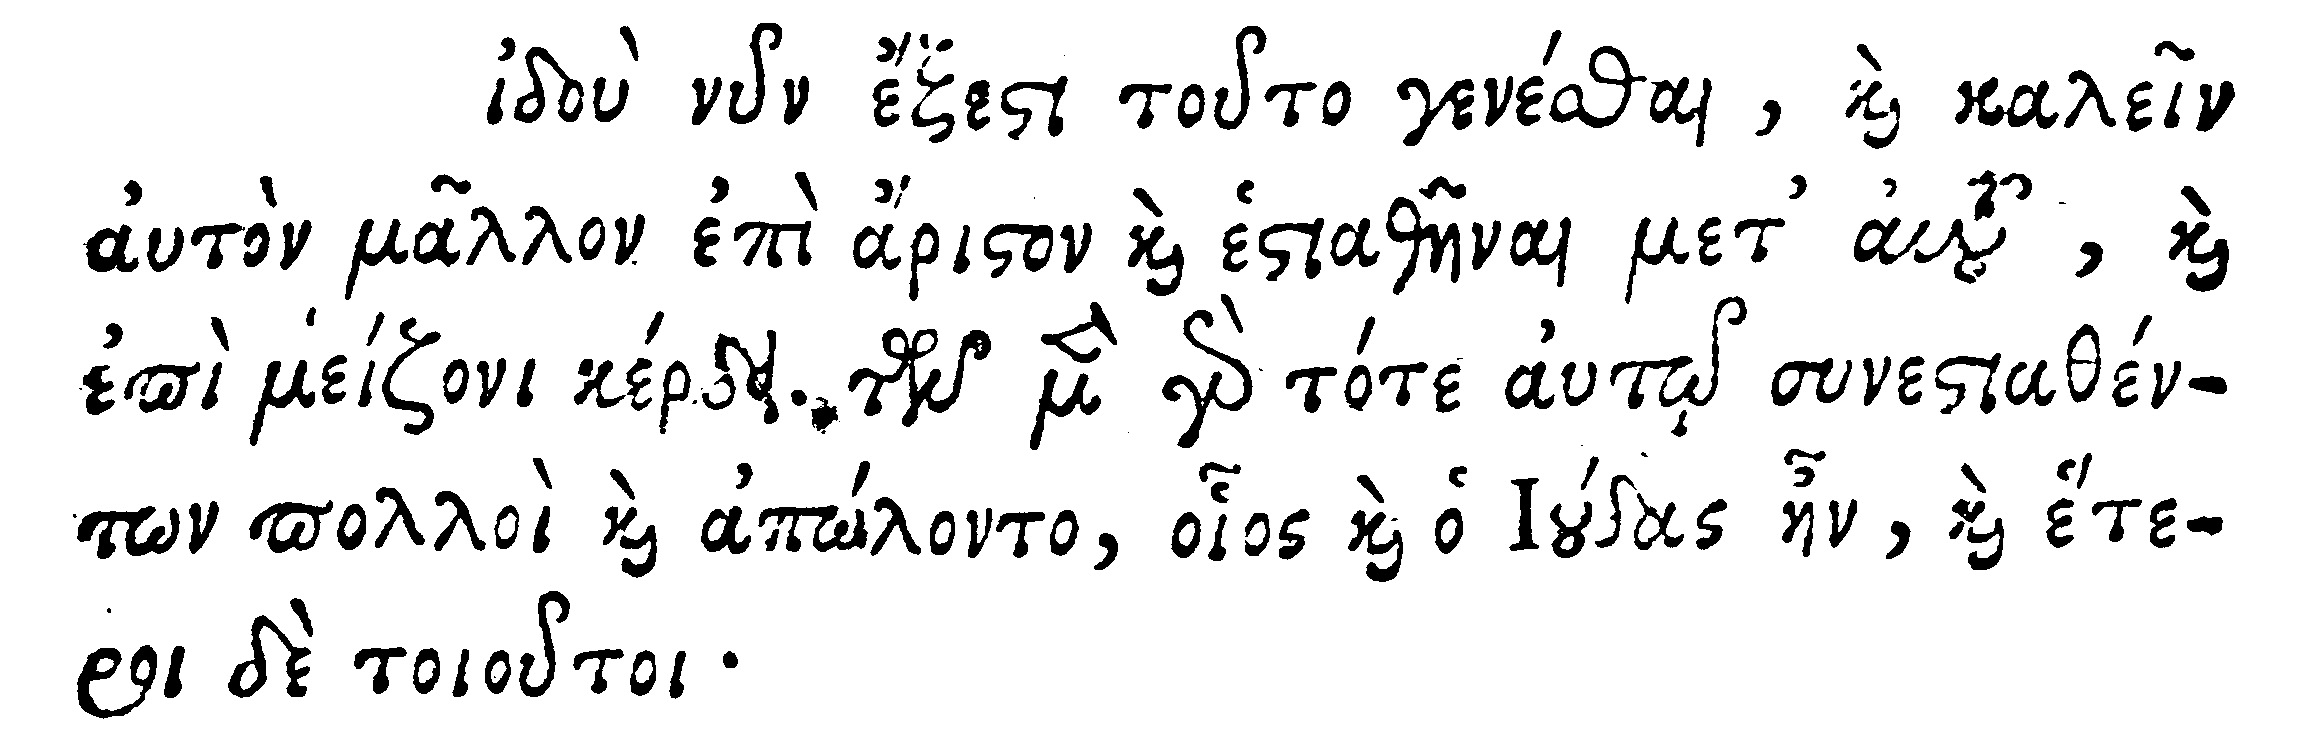 ἰδοὺ νῦν ἔξεςι τοῦτο γενέσθαι, ϗ̀ καλεῖν
ἀυτὸν μᾶλλον ἐπὶ ἄριςον ϗ̀ ἑςιαθῆναι μετ’ ἀυτοῦ, ϗ̀
ἐπὶ μείζονι κέρδει. τῶν μὲν γὸ τότε ἀυτῷ συνεςιαθέν-
των πολλοὶ ϗ̀ ἀπώλοντο, οἷος ϗ̀ ὁ Ιούδας ἦν, ϗ̀ ἕτε-
ροι δὲ τοιοῦτοι·